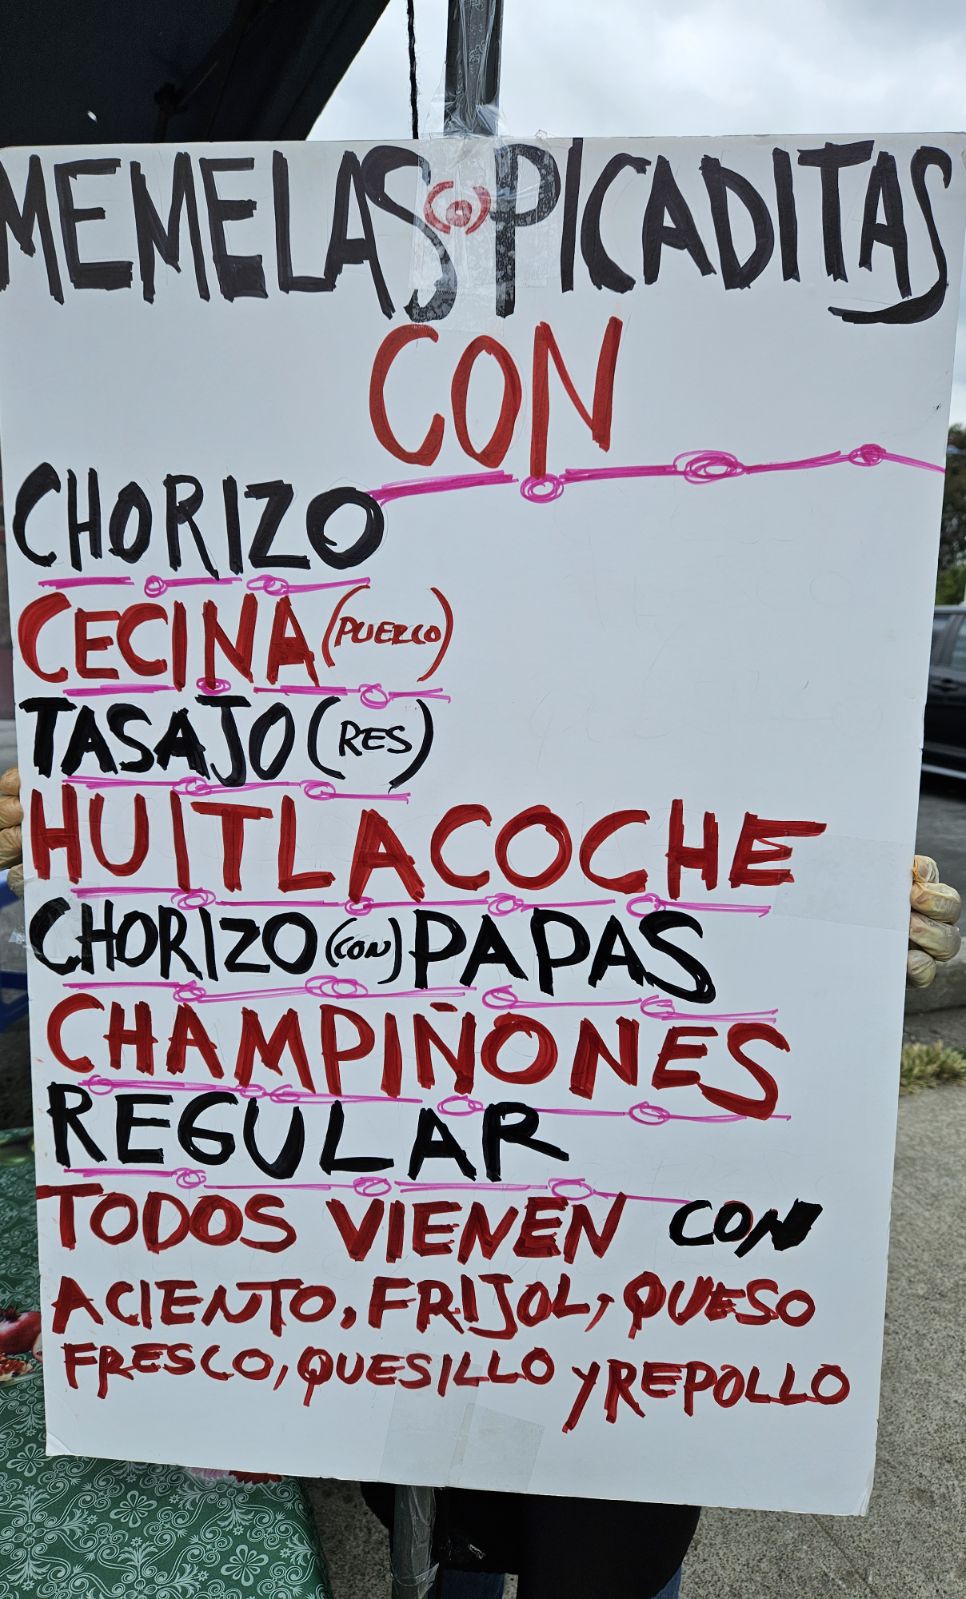 MEMELAS (O) PICADITAS
CON
CHORIZO
CECINA (PUERCO)
TASAJO (RES)
HUITLACOCHE
CHORIZO (CON) PAPAS
CHAMPIÑONES
REGULAR
TODOS VIENEN CON
ACIENTO, FRIJOL, QUESO
FRESCO, QUESILLO Y REPOLLO